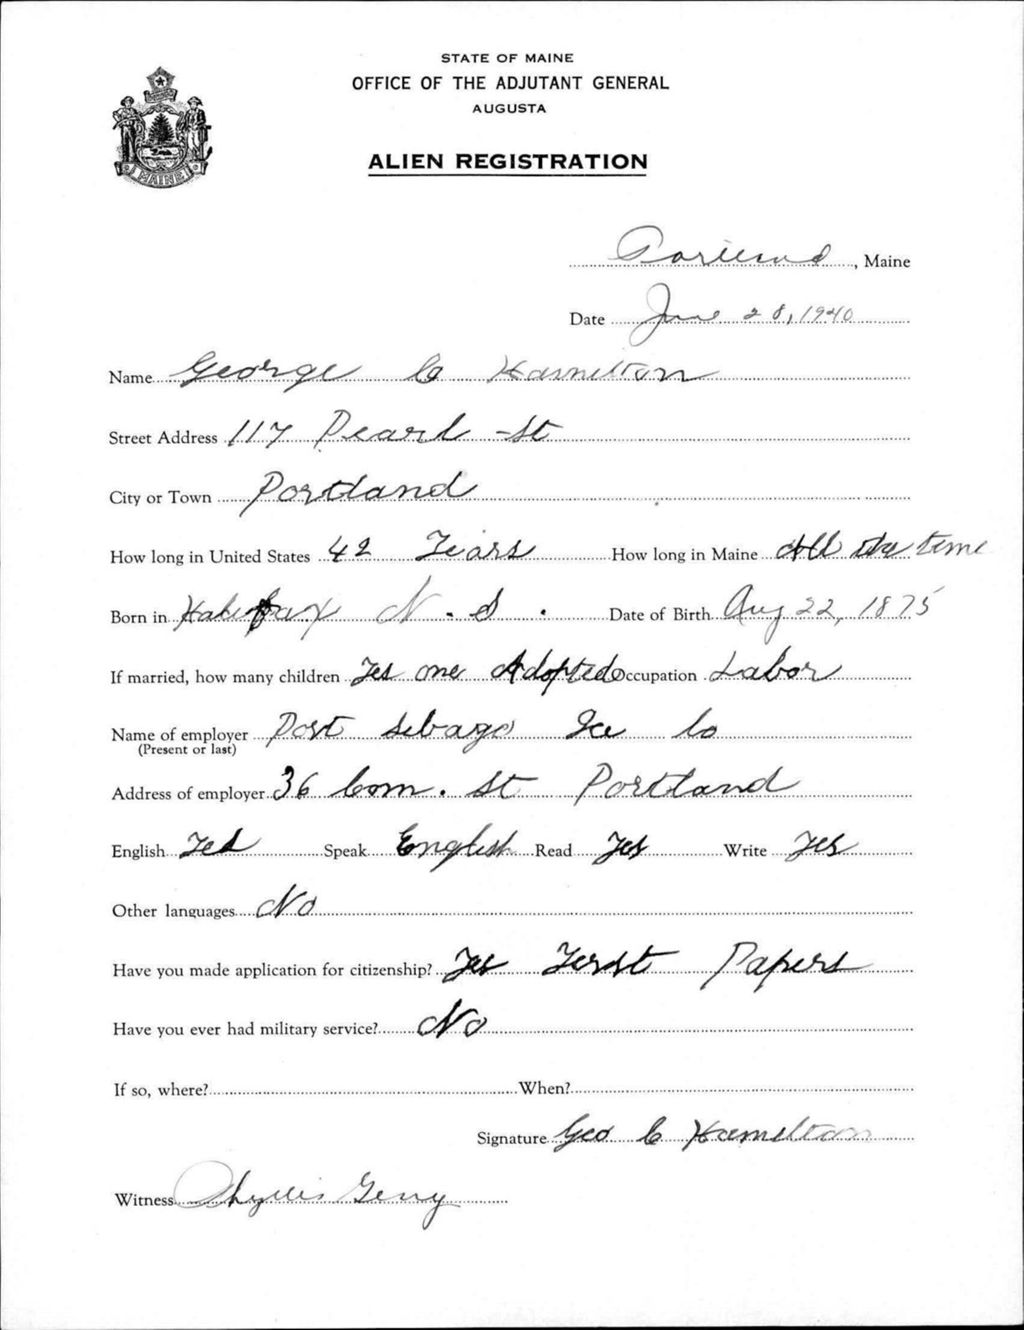 STATE OF MAINE
OFFICE OF THE ADJUTANT GENERAL
AUGUSTA
ALIEN REGISTRATION
MAINE
Portland, Maine
Date June 28, 1940
Name George C Hamilton
Street Address 117 Pearl St
City or Town Portland
How long in United States 42 Years How long in Maine All the time
Born in Halifax N.S. Date of Birth Aug 22, 1875
If married, how many children Yes one Adopted Occupation Labor
Name of employer Post Sebago Ice Co
(Present or last)
Address of employer 36 Com. St Portland
English Yes Speak English Read Yes Write Yes
Other languages No
Have you made application for citizenship? Yes First Papers
Have you ever had military service? No
If so, where? When?
Signature Geo C Hamilton
Witness Phyllis Gerry